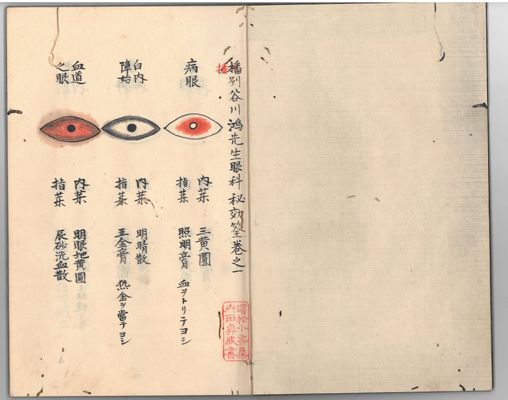 播州谷川鴻先生眼科秘効筌巻之一
病眼
内薬 三黄圓
指薬 照明膏 血ヲトリテヨシ
白内
障始
内薬 明晴散
指薬 五金膏 熱金ヲ當テヨシ
血道
之眼
内薬 明眼地黄圓
指薬 辰砂洗血散